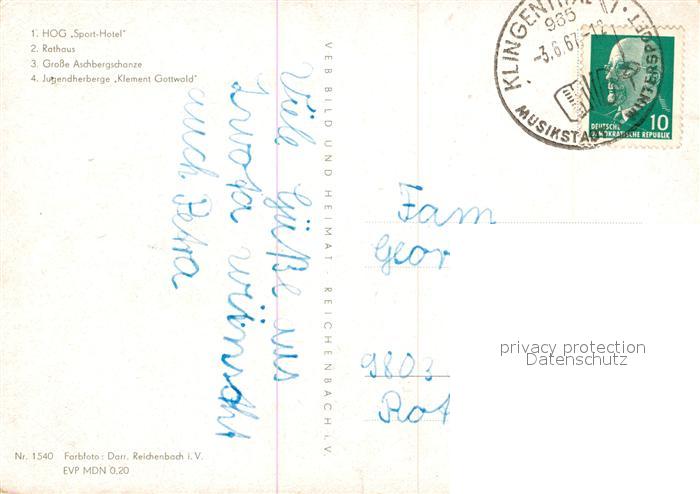 1. HOG „Sport-Hotel"
2. Rathaus
3. Große Aschbergschanze
4. Jugendherberge „Klement Gottwald"
KLINGENTHAL 1
965
-3.6.67-12
MUSIKSTADT WINTERSPORT
DEUTSCHE
DEMOKRATISCHE REPUBLIK
10
Viele Grüße aus
Zwota wünscht
auch Petra
VEB BILD UND HEIMAT · REICHENBACH i. V.
Fam
Geor
9803
Rot
privacy protection
Datenschutz
Nr. 1540 Farbfoto: Darr, Reichenbach i. V.
EVP MDN 0,20